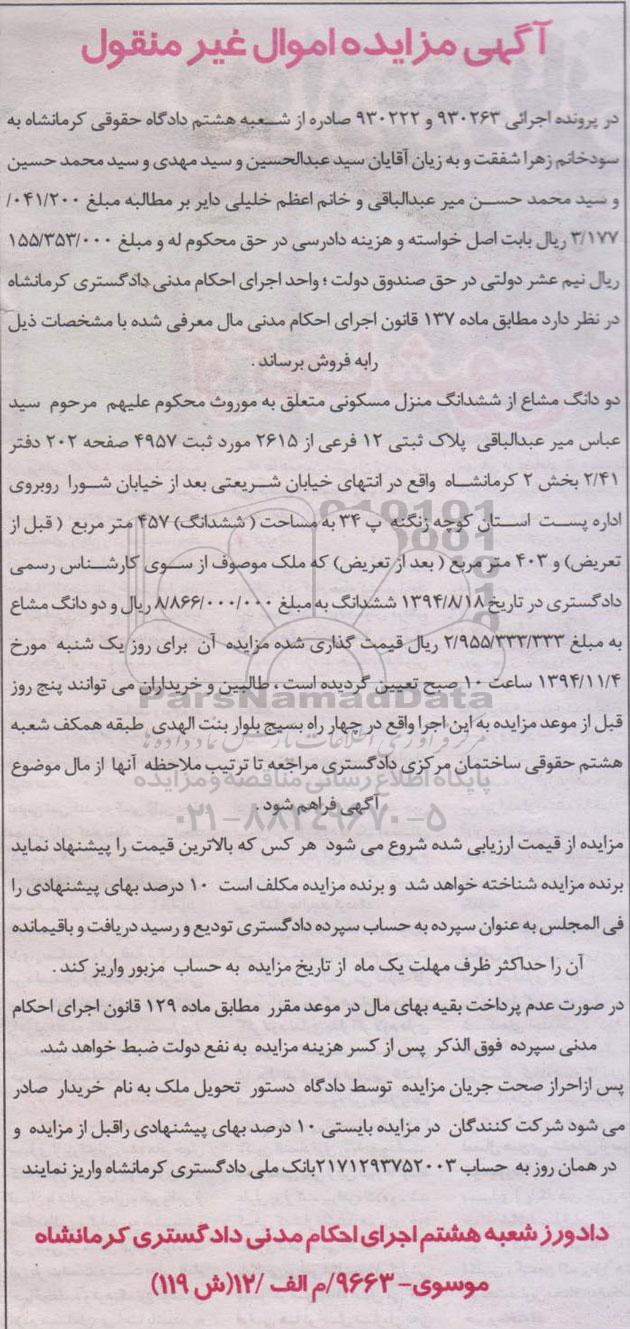 آگهی مزایده اموال غیر منقول
در پرونده اجرائی ۹۳۰۲۶۳ و ۹۳۰۲۲۲ صادره از شعبه هشتم دادگاه حقوقی کرمانشاه به
سودخانم زهرا شفقت و به زیان آقایان سید عبدالحسین و سید مهدی و سید محمد حسین
و سید محمد حسن میر عبدالباقی و خانم اعظم خلیلی دایر بر مطالبه مبلغ ۰۴۱/۲۰۰/
۳/۱۷۷ ریال بابت اصل خواسته و هزینه دادرسی در حق محکوم له و مبلغ ۱۵۵/۳۵۳/۰۰۰
ریال نیم عشر دولتی در حق صندوق دولت ؛ واحد اجرای احکام مدنی دادگستری کرمانشاه
در نظر دارد مطابق ماده ۱۳۷ قانون اجرای احکام مدنی مال معرفی شده با مشخصات ذیل
رابه فروش برساند .
دو دانگ مشاع از ششدانگ منزل مسکونی متعلق به موروث محکوم علیهم مرحوم سید
عباس میر عبدالباقی پلاک ثبتی ۱۲ فرعی از ۲۶۱۵ مورد ثبت ۴۹۵۷ صفحه ۲۰۲ دفتر
۲/۴۱ بخش ۲ کرمانشاه واقع در انتهای خیابان شریعتی بعد از خیابان شورا روبروی
اداره پست استان کوچه زنگنه پ ۳۴ به مساحت ( ششدانگ) ۴۵۷ متر مربع ( قبل از
تعریض) و ۴۰۳ متر مربع ( بعد از تعریض) که ملک موصوف از سوی کارشناس رسمی
دادگستری در تاریخ ۱۳۹۴/۸/۱۸ ششدانگ به مبلغ ۸/۸۶۶/۰۰۰/۰۰۰ ریال و دو دانگ مشاع
به مبلغ ۲/۹۵۵/۳۳۳/۳۳۳ ریال قیمت گذاری شده مزایده آن برای روز یک شنبه مورخ
۱۳۹۴/۱۱/۴ ساعت ۱۰ صبح تعیین گردیده است ، طالبین و خریداران می توانند پنج روز
ParsNamadData
قبل از موعد مزایده به این اجرا واقع در چهار راه بسیج بلوار بنت الهدی طبقه همکف شعبه
مرکز فرآوری اطلاعات پارس نماد داده ها
هشتم حقوقی ساختمان مرکزی دادگستری مراجعه تا ترتیب ملاحظه آنها از مال موضوع
پایگاه اطلاع رسانی مناقصه و مزایده
آگهی فراهم شود .
۰۲۱-۸۸۳۴۹۶۷۰-۵
مزایده از قیمت ارزیابی شده شروع می شود هر کس که بالاترین قیمت را پیشنهاد نماید
برنده مزایده شناخته خواهد شد و برنده مزایده مکلف است ۱۰ درصد بهای پیشنهادی را
فی المجلس به عنوان سپرده به حساب سپرده دادگستری تودیع و رسید دریافت و باقیمانده
آن را حداکثر ظرف مهلت یک ماه از تاریخ مزایده به حساب مزبور واریز کند .
در صورت عدم پرداخت بقیه بهای مال در موعد مقرر مطابق ماده ۱۲۹ قانون اجرای احکام
مدنی سپرده فوق الذکر پس از کسر هزینه مزایده به نفع دولت ضبط خواهد شد.
پس ازاحراز صحت جریان مزایده توسط دادگاه دستور تحویل ملک به نام خریدار صادر
می شود شرکت کنندگان در مزایده بایستی ۱۰ درصد بهای پیشنهادی راقبل از مزایده و
در همان روز به حساب ۲۱۷۱۲۹۳۷۵۲۰۰۳بانک ملی دادگستری کرمانشاه واریز نمایند
دادورز شعبه هشتم اجرای احکام مدنی دادگستری کرمانشاه
موسوی- ۹۶۶۳/م الف /۱۲(ش ۱۱۹)